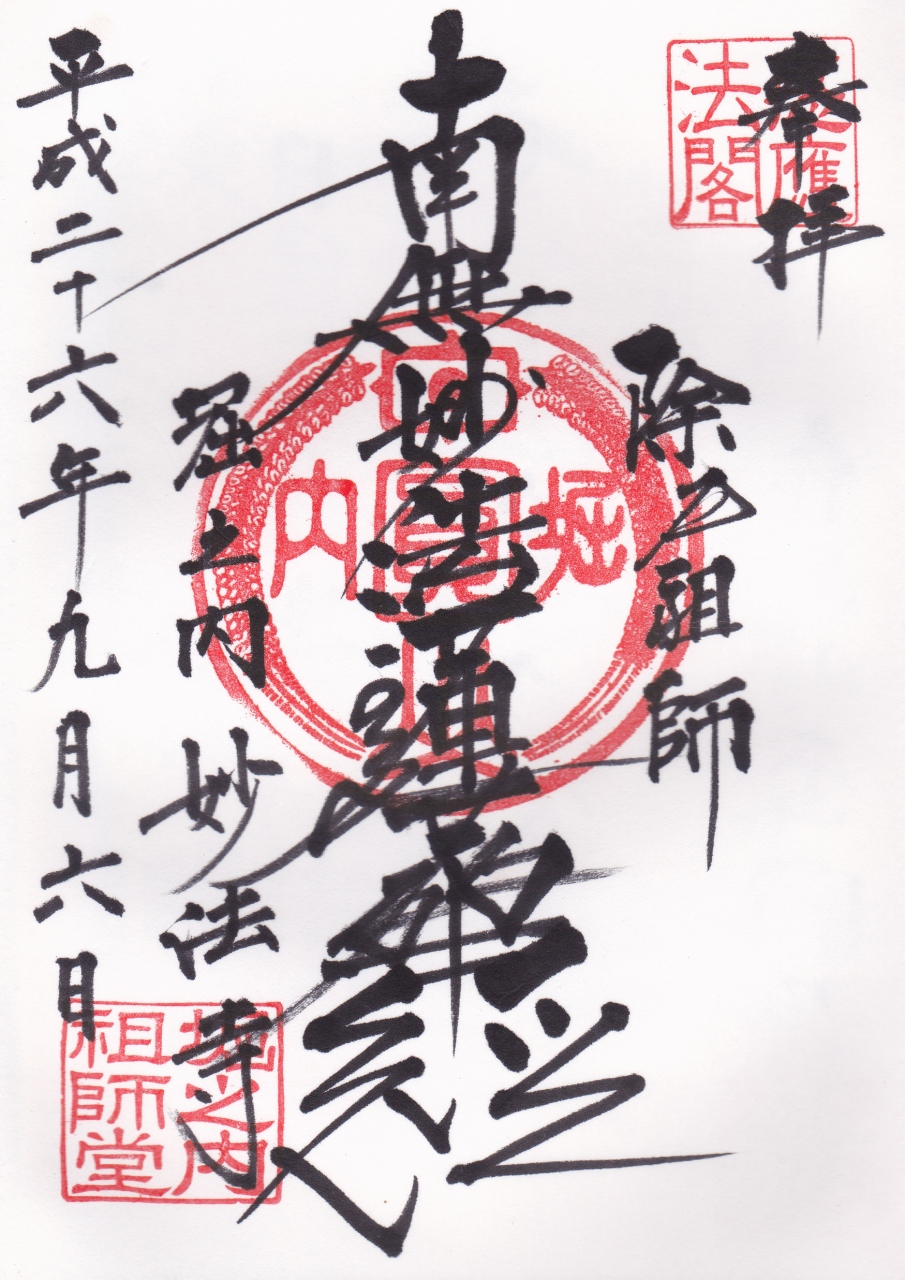 奉拝
除厄祖師
南無妙法蓮華經
堀之内 妙法寺
平成二十六年九月六日
應法閣
堀内
堀之内
祖師堂